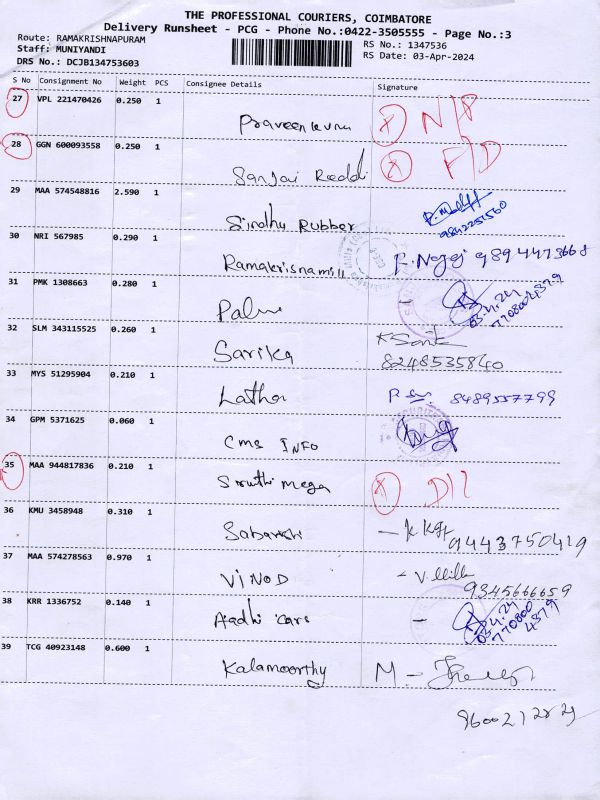 THE PROFESSIONAL COURIERS, COIMBATORE
Delivery Runsheet - PCG - Phone No.:0422-3505555 - Page No.:3
Route: RAMAKRISHNAPURAM
Staff: MUNIYANDI
DRS No.: DCJB134753603
RS No.: 1347536
RS Date: 03-Apr-2024
S No Consignment No Weight PCS Consignee Details Signature
27 VPL 221470426 0.250 1
28 GGN 600093558 0.250 1
Sanjai Reddi
29 MAA 574548816 2.590 1
Sindhu Rubber
30 NRI 567985 0.290 1
Ramakrisnamill
31 PMK 1308663 0.280 1
03.4.24
7708004379
32 SLM 343115525 0.260 1
Sarika
8248535840
33 MYS 51295904 0.210 1
Latha 8489557799
34 GPM 5371625 0.060 1
CMS INFO
35 MAA 944817836 0.210 1
Sruthi mega
36 KMU 3458948 0.310 1
9443750419
37 MAA 574278563 0.970 1
VINOD
9345666659
38 KRR 1336752 0.140 1
Aadhi cars
03.4.24
770800
4379
39 TCG 40923148 0.600 1
Kalamoorthy